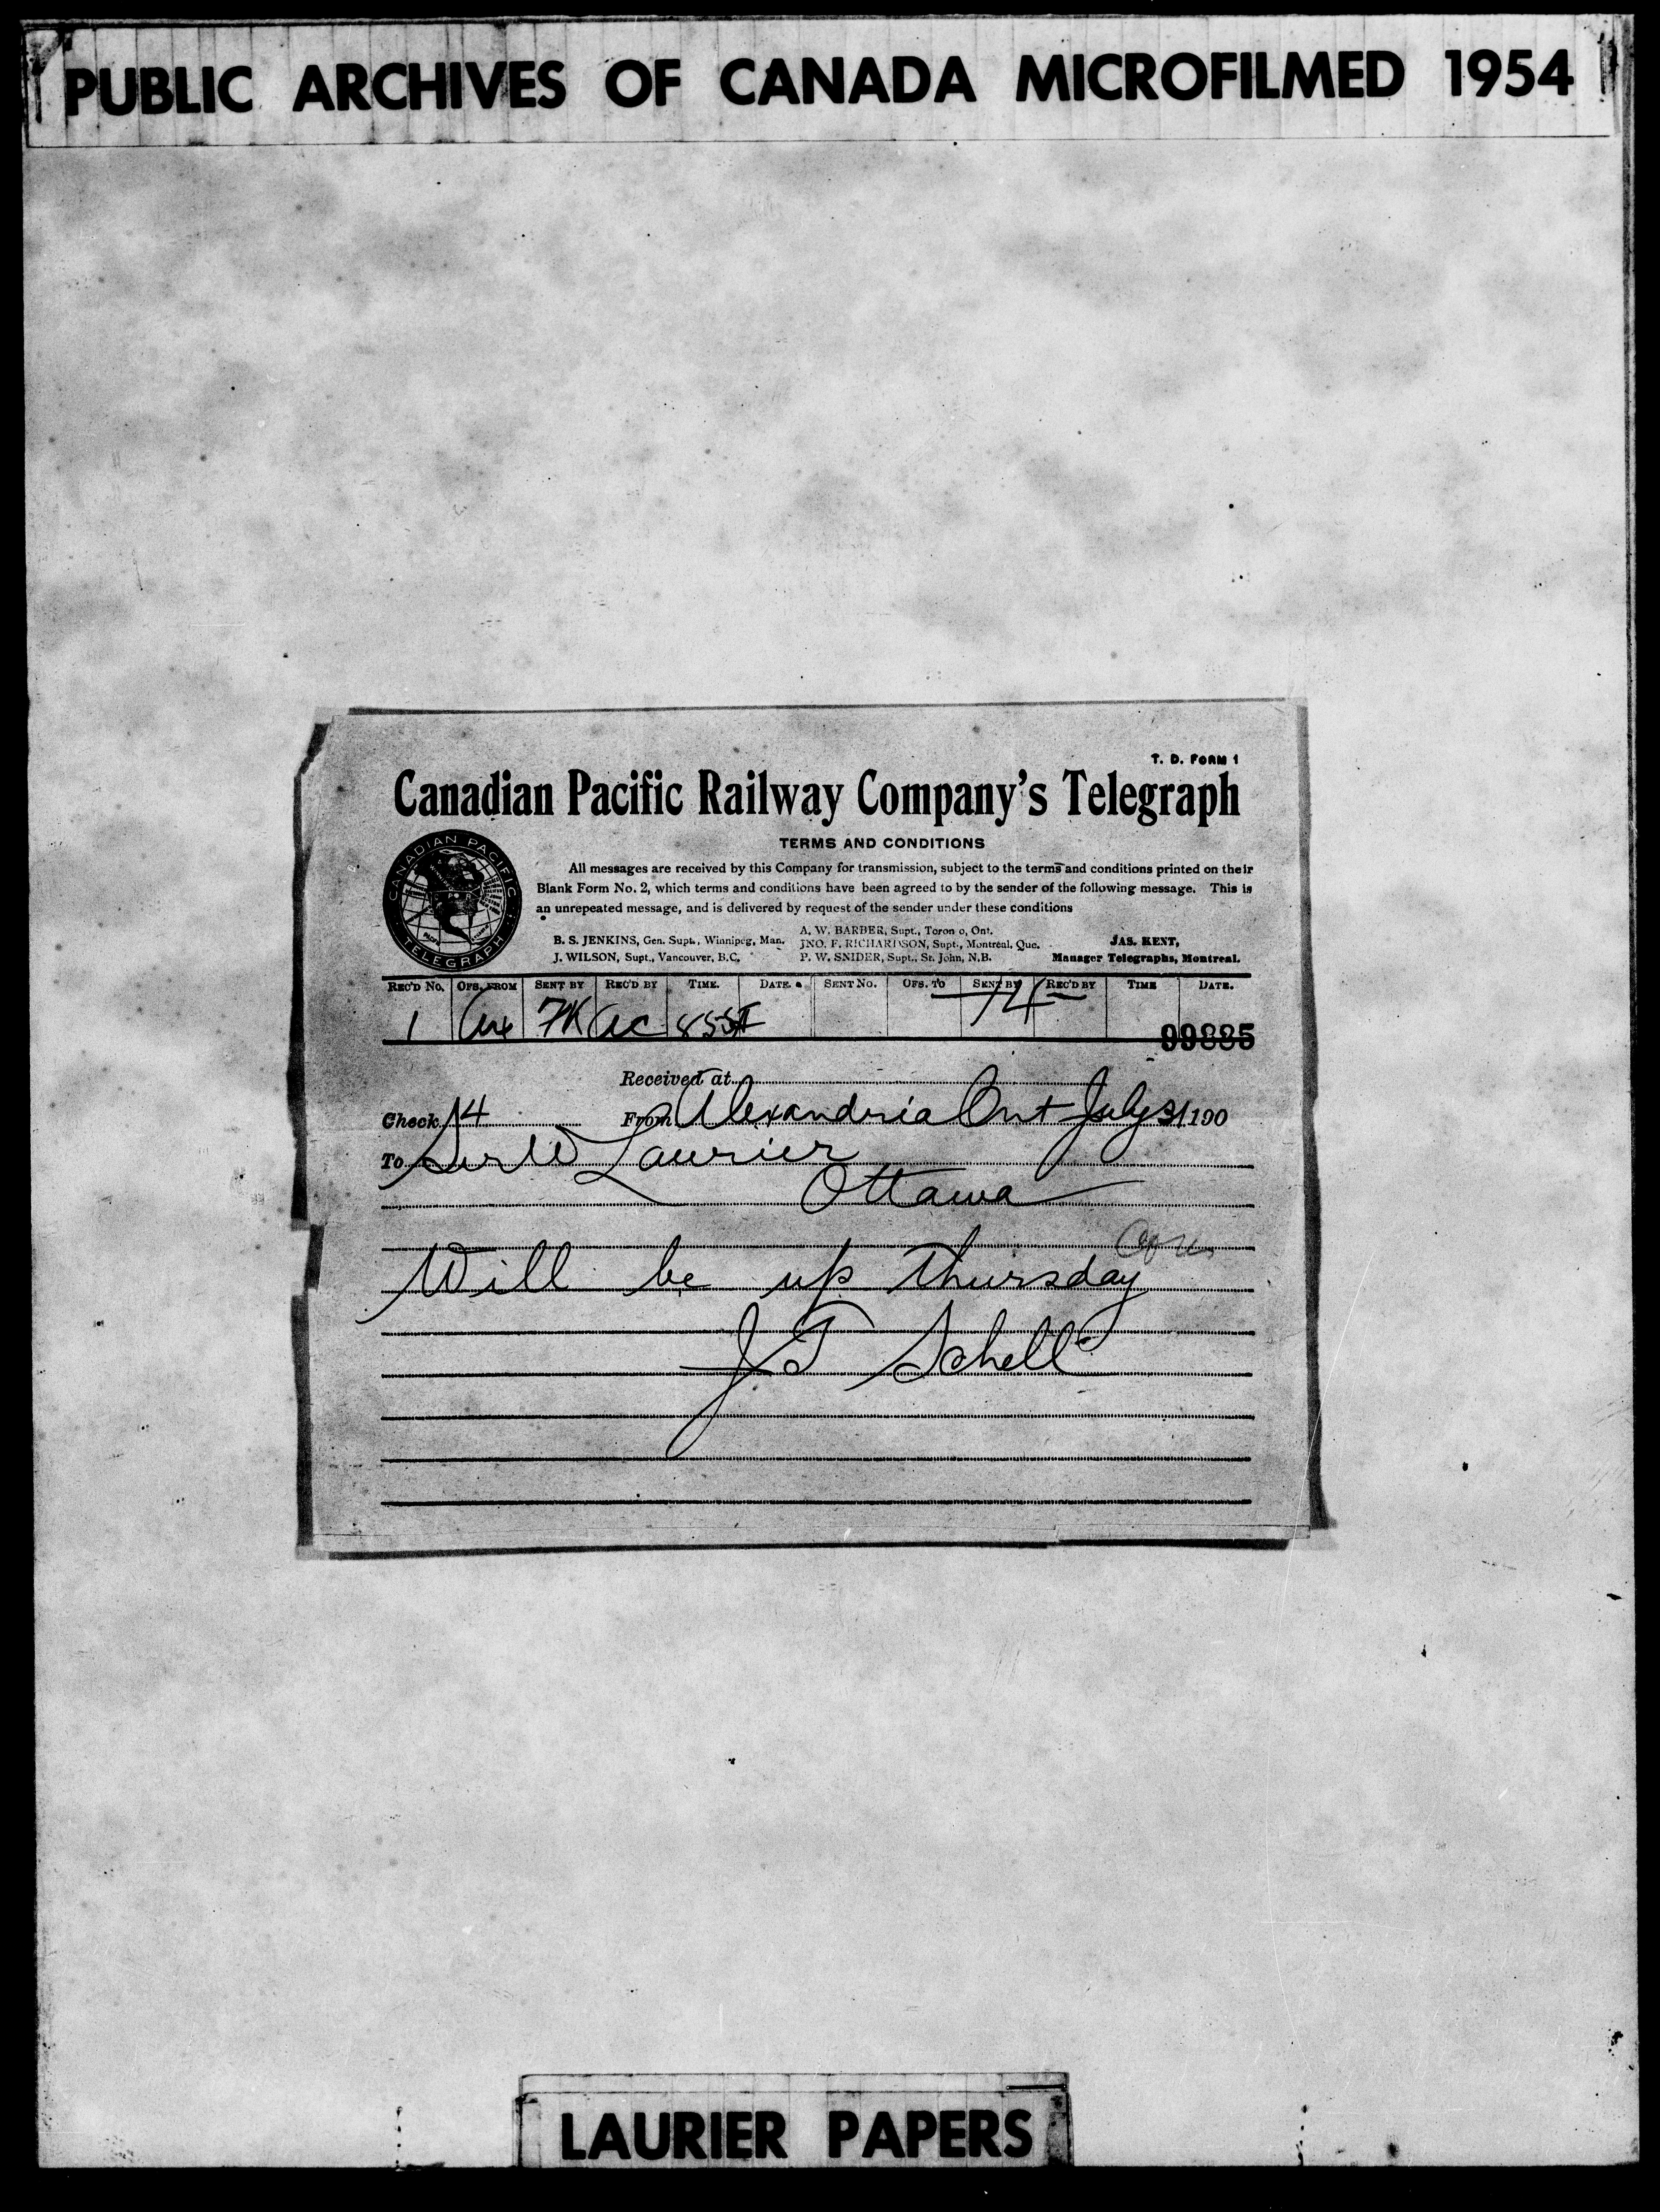 PUBLIC ARCHIVES OF CANADA MICROFILMED 1954
T. D. FORM 1
Canadian Pacific Railway Company's Telegraph
TERMS AND CONDITIONS
CANADIAN PACIFIC TELEGRAPH
All messages are received by this Company for transmission, subject to the terms and conditions printed on their
Blank Form No. 2, which terms and conditions have been agreed to by the sender of the following message. This is
an unrepeated message, and is delivered by request of the sender under these conditions
A. W. BARBER, Supt., Toron o, Ont.
B. S. JENKINS, Gen. Supt., Winnipeg, Man. JNO. F. RICHARDSON, Supt., Montreal, Que. JAS. KENT,
J. WILSON, Supt., Vancouver, B.C. P. W. SNIDER, Supt., St. John, N.B. Manager Telegraphs, Montreal.
REC'D NO. OFS. FROM SENT BY REC'D BY TIME. DATE. SENT NO. OFS. TO SENT BY REC'D BY TIME DATE.
1 7K 855
99885
Received at
Check 14 From Alexandria Ont July 31 190
To Sir W Laurier
Ottawa
Will be up Thursday
J T Schell
LAURIER PAPERS